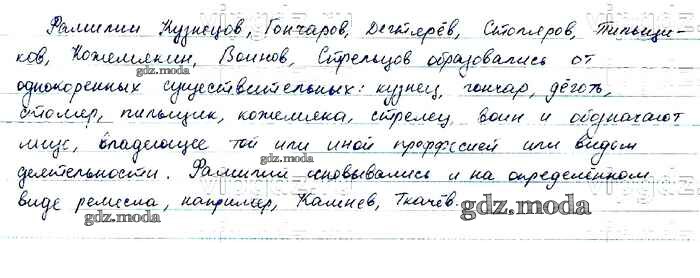 Фамилии Кузнецов, Гончаров, Дегтярёв, Столяров, Пильщи-
ков, Кожемякин, Воинов, Стрельцов образовались от
gdz.moda
однокоренных существительных: кузнец, гончар, дёготь,
столяр, пильщик, кожемяка, стрелец, воин и обозначают
gdz.moda
лицо, владеющее той или иной профессией или видом
gdz.moda
деятельности. Фамилии основывались и на определённом
виде ремесла, например, Камнев, Ткачёв.
gdz.moda
gdz.moda